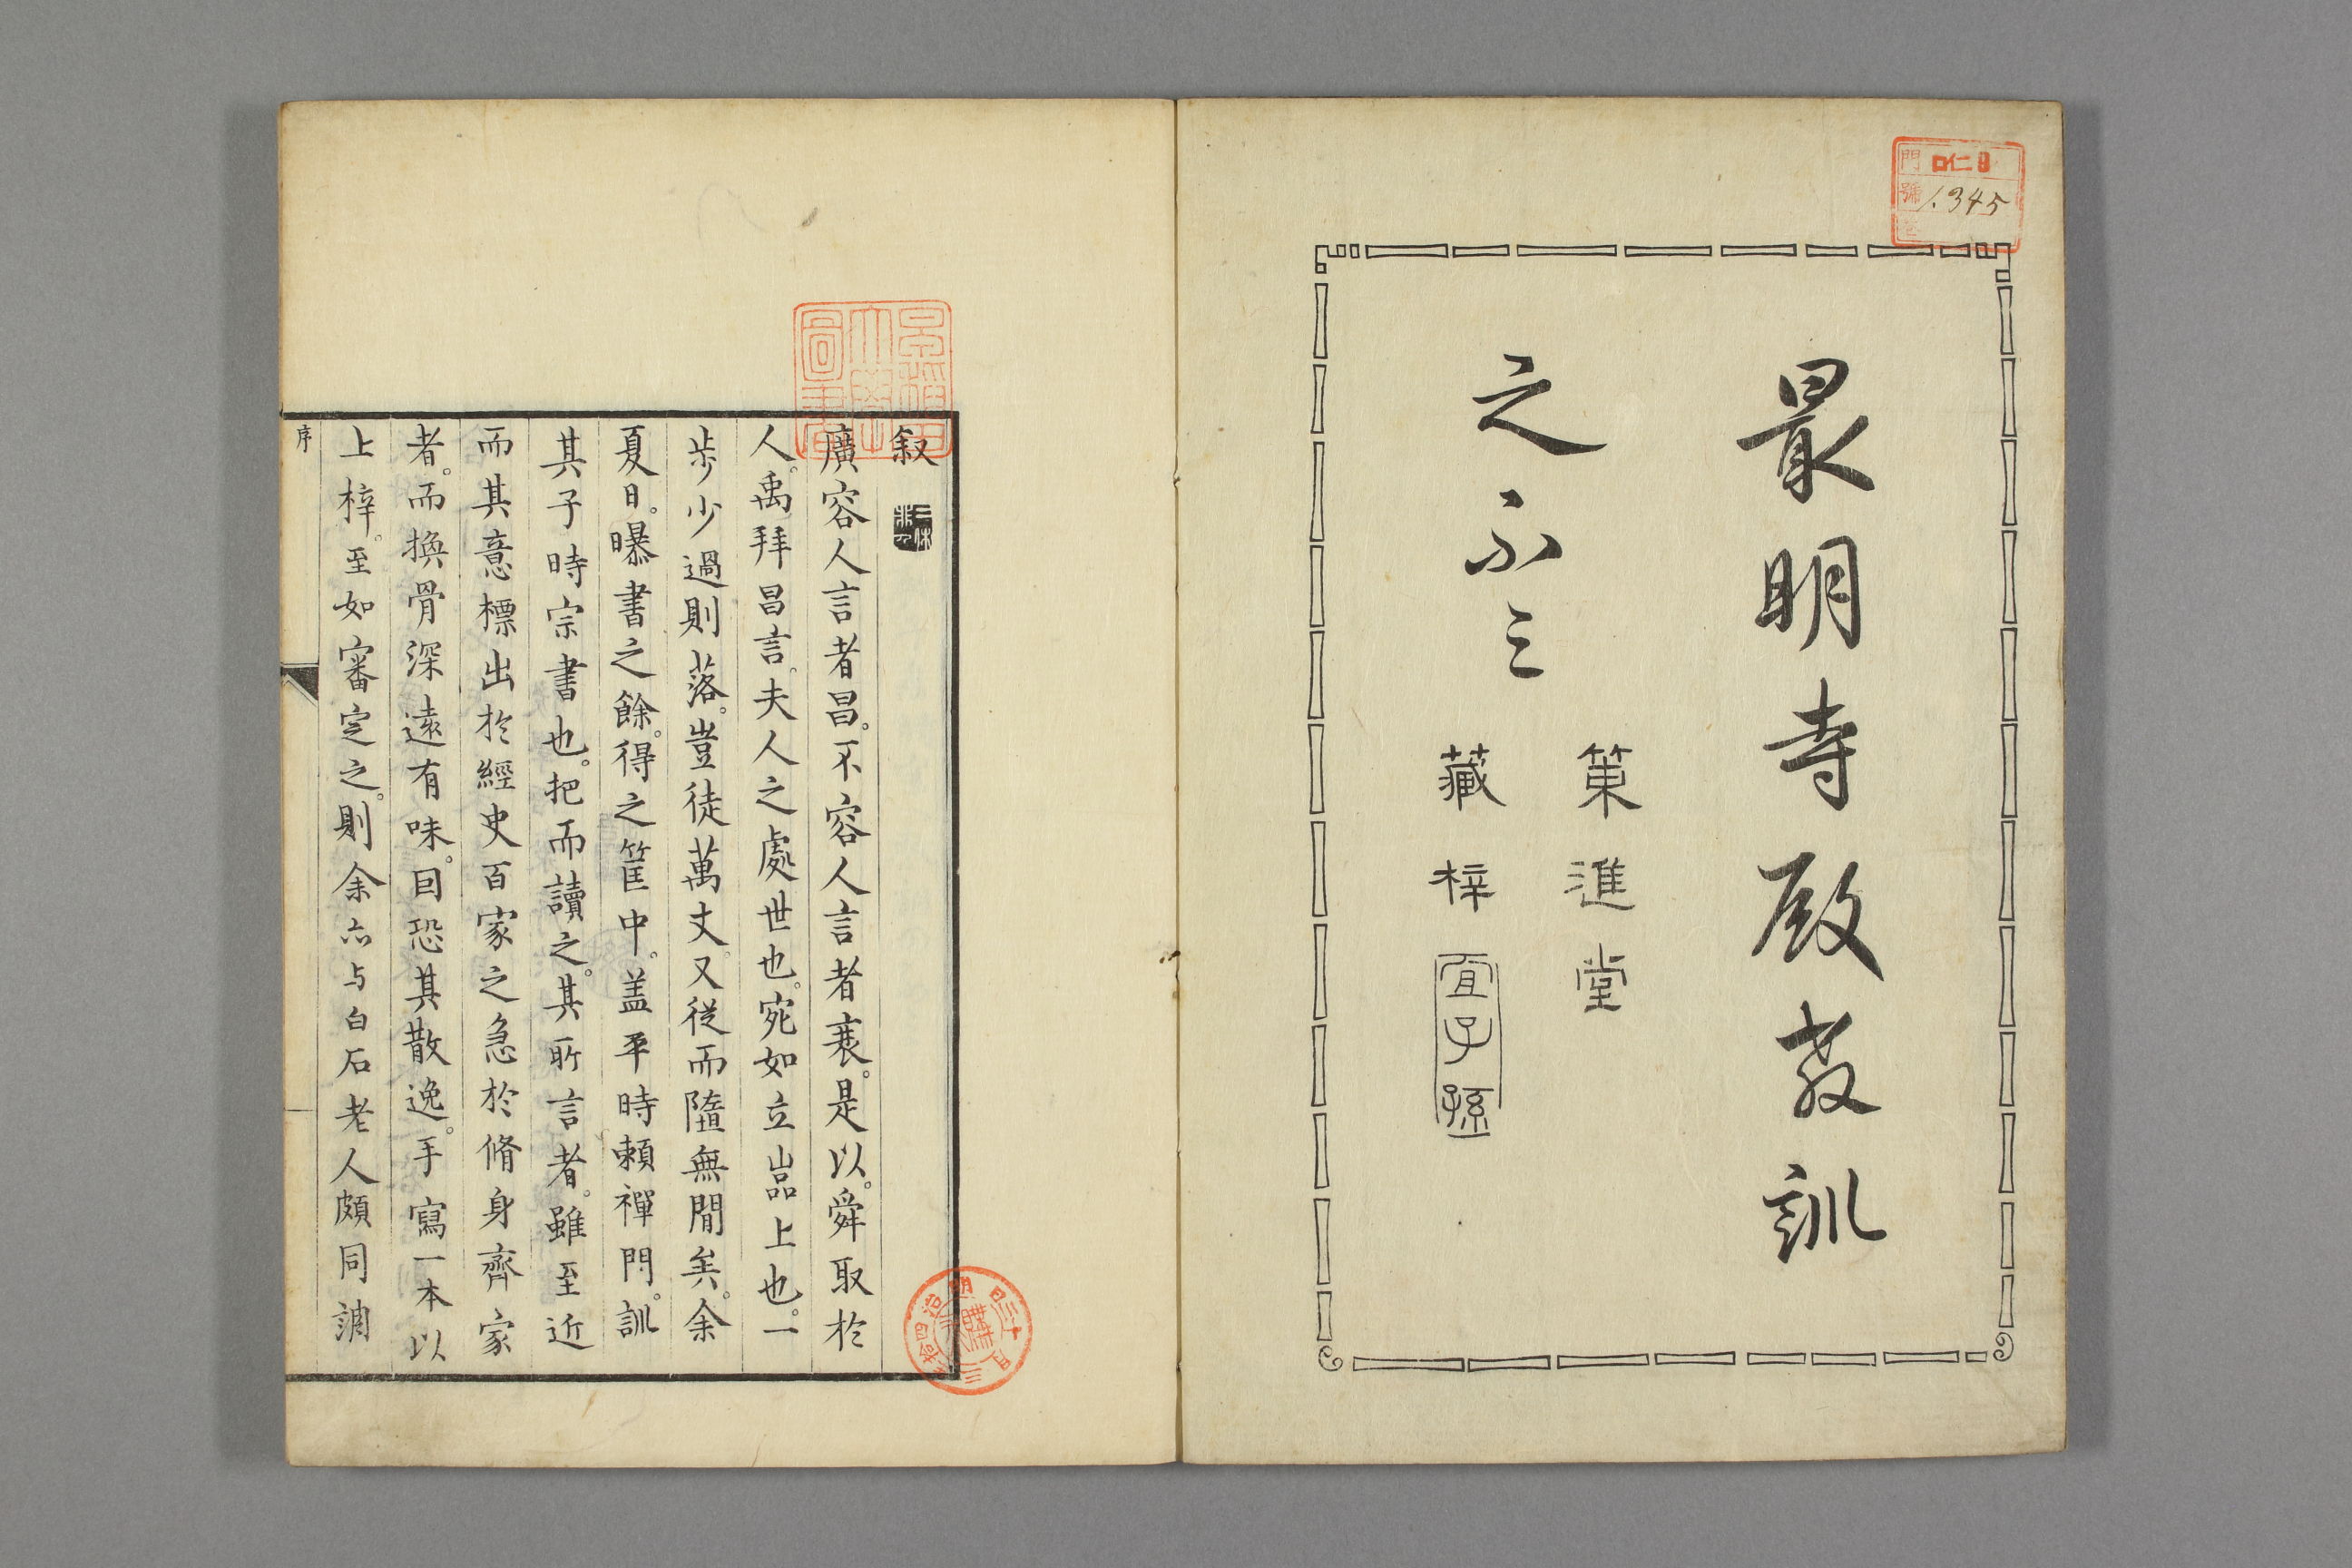 門 口仁日
號 1.345
最明寺殿教訓
之不三
策進堂
藏梓
宜子孫
叙
廣容人言者昌。不容人言者衰。是以。舜取於
人。禹拜昌言。夫人之處世也。宛如立嵓上也。一
步少過則落。豈徒萬丈。又從而墮無間矣。余
夏日。曝書之餘。得之筐中。盖平時頼禪門。訓
其子時宗書也。把而讀之。其所言者。雖至近
而其意標出於經史百家之急於脩身齊家
者。而換骨深遠有味。因恐其散逸。手寫一本以
上梓。至如審定之。則余亦与白石老人頗同調
序
早稲田大學圖書